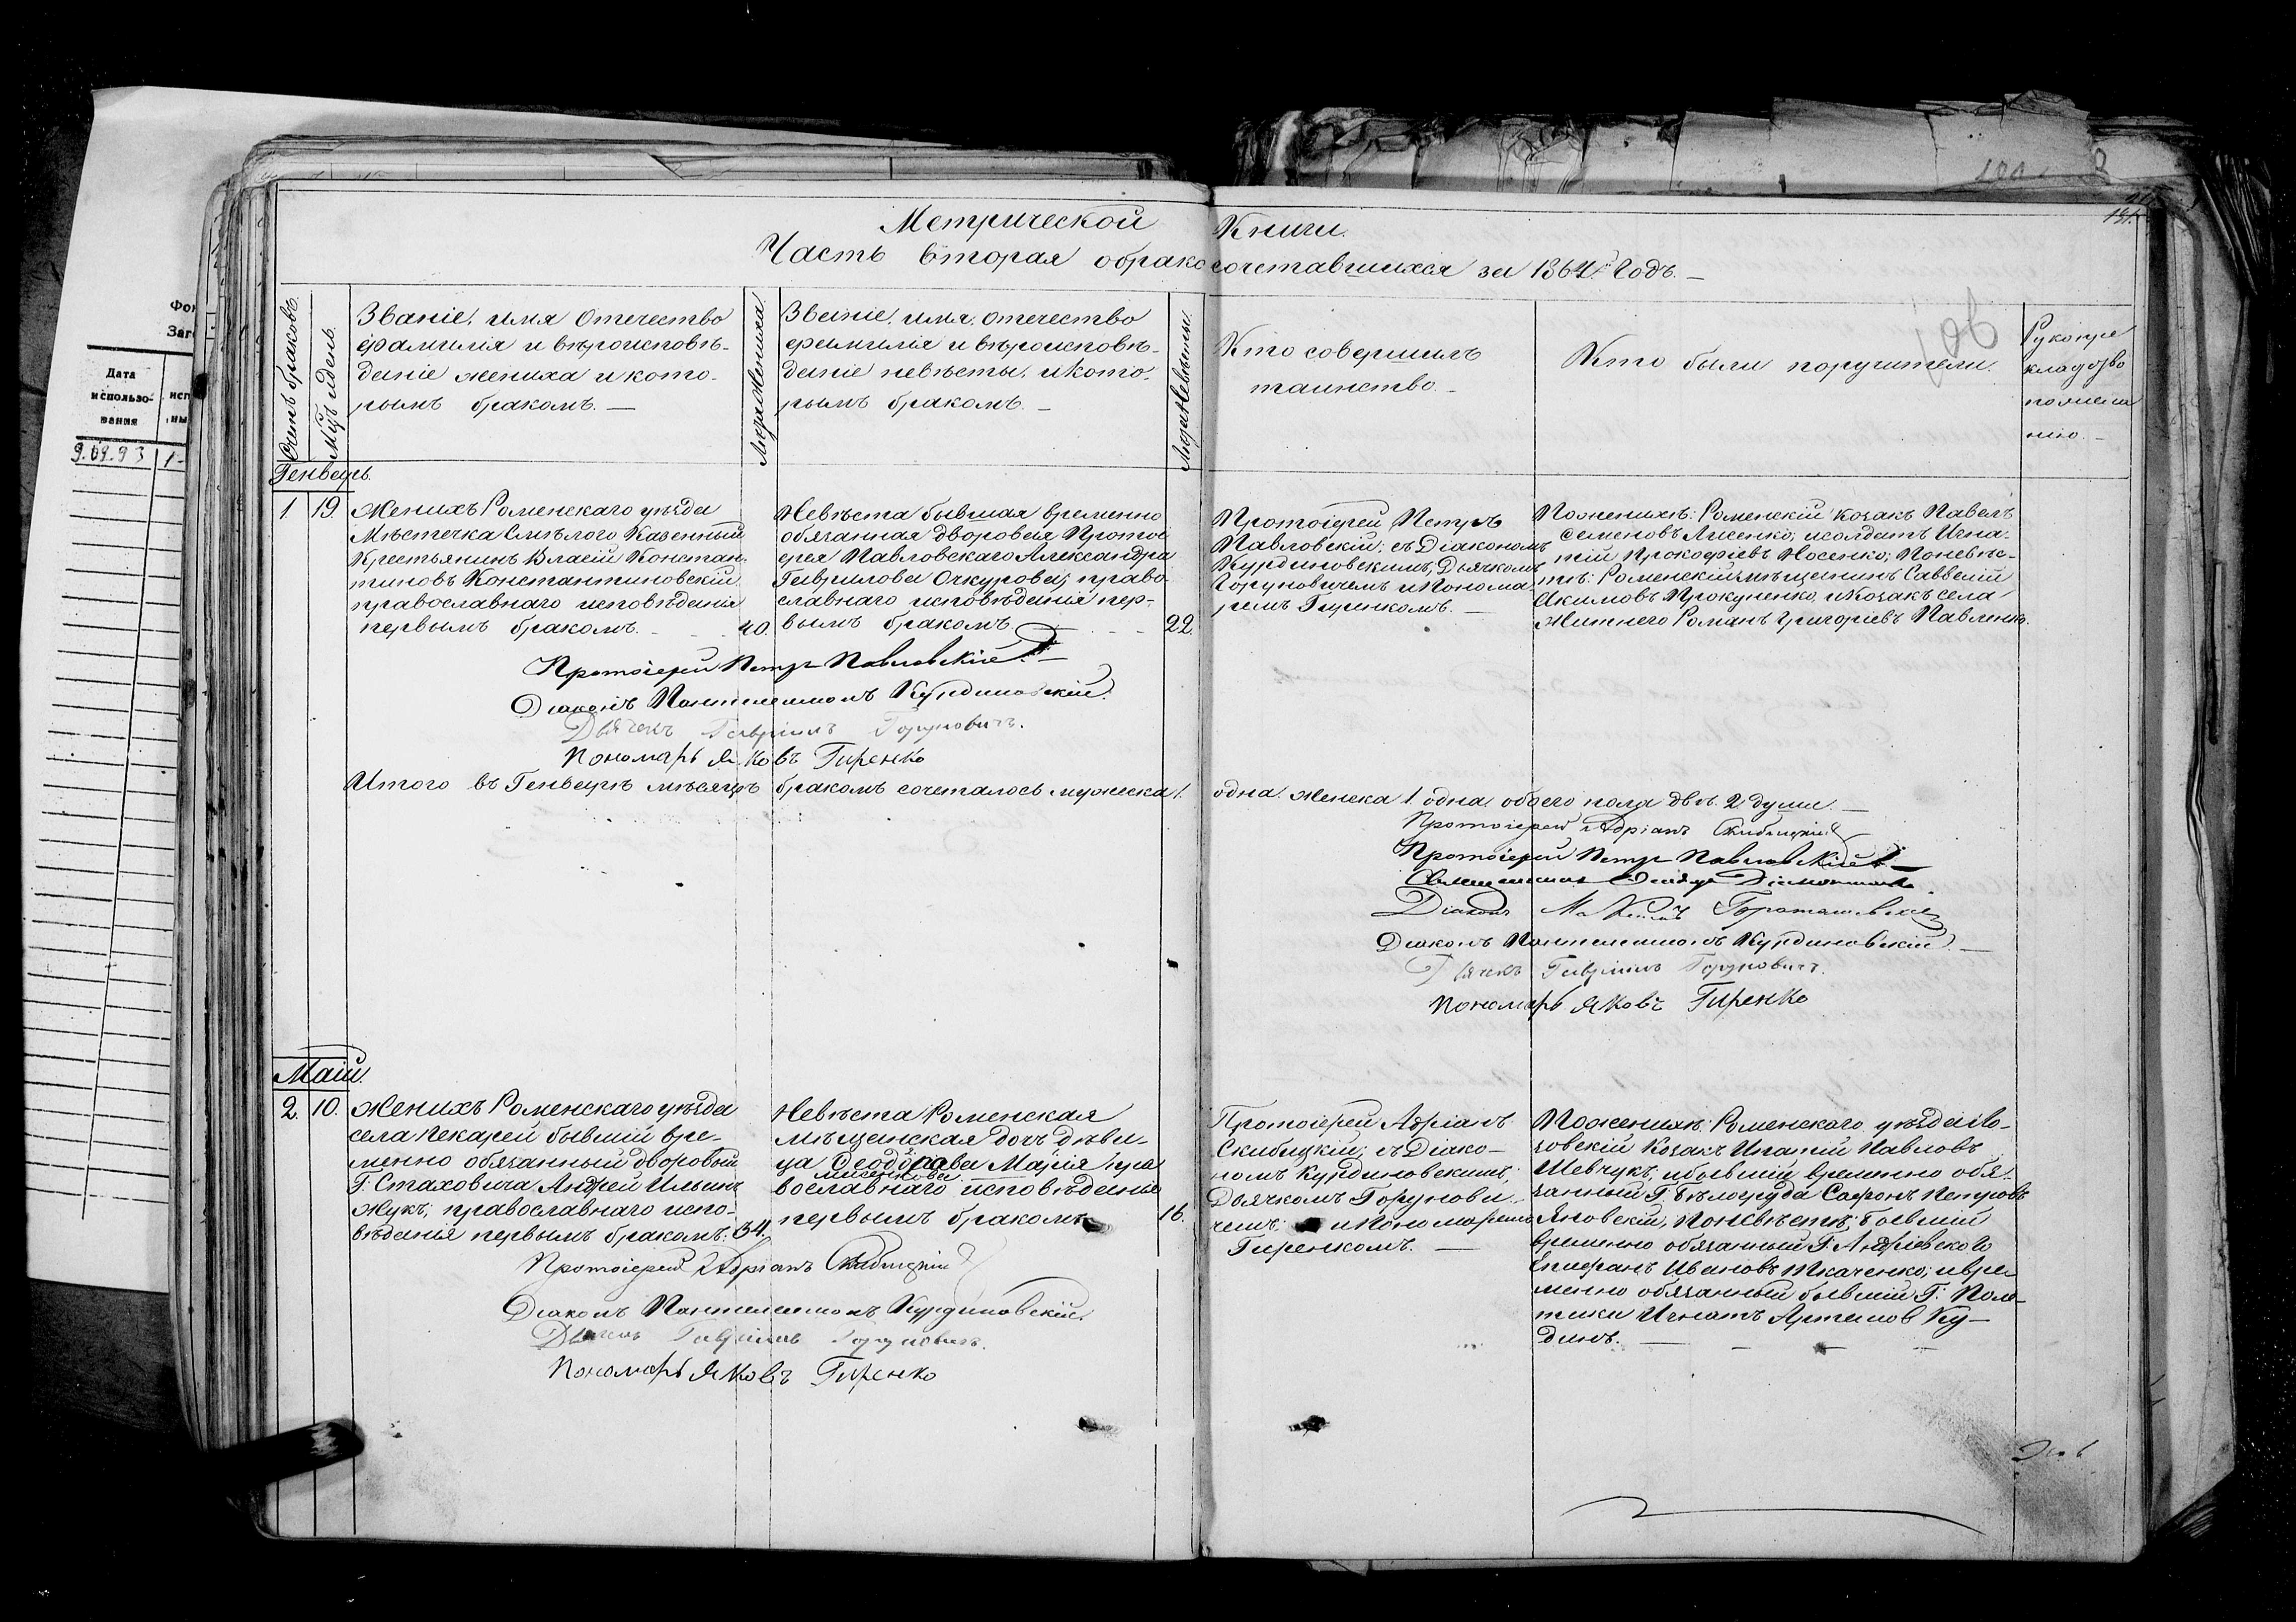 Метрической Книги.
Часть вторая обракосочетавшихся за 1864й Годъ.
Счетъ браковъ.
Мцъ идень.
Званіе, имя Отечество
фамилія и вѣроисповѣ-
даніе жениха и кото-
рымъ бракомъ.
Лѣта Жениха
Званіе, имя, отечество
фамилія и вѣроисповѣ-
даніе невѣсты, икото-
рымъ бракомъ.
Лѣта Невѣсты.
Кто совершилъ
таинство.
Кто были поручители.
Рукопри
кладство
пожела
нію.
Генварь.
1 19. Женихъ Роменскаго уѣзда
Мѣстечка Смѣлого Казенный
Крестьянинъ Власій Констан-
тиновъ Константиновскій
православнаго исповѣданія
первымъ бракомъ. 40.
Невѣста бывшая временно
обязанная дворовая Протоі
ерея Павловскаго Александра
Гаврилова Очкурова; право
славнаго исповѣданія пер-
вымъ бракомъ. 22.
Протоіерей Петръ
Павловскій; съ Діакономъ
Курдиновскимъ, Дьячкомъ
Горуновичемъ и Понома-
ремъ Гиренкомъ.
Поженихѣ: Роменскій козакъ Павелъ
Семеновъ Лисенко; исолдатъ Игна-
тій Прокофіевъ Носенко; Поневѣс-
тѣ: Роменскій мѣщанинъ Савелій
Акимовъ Прокупенко, икозакъ села
Житнего Романъ Григоріевъ Павленко.
Протоіерей Петръ Павловскій.
Діаконъ Пантелеимонъ Курдиновскій.
Дьячекъ Гавріилъ Горуновичъ.
Пономарь Яковъ Гиренко
Итого въ Генварѣ мѣсяцѣ бракомъ сочеталось мужеска 1. одна. женска 1. одна, обоего пола двѣ. 2. души.
Протоіерей Адріанъ Скибицкій
Протоіерей Петръ Павловскій
Діаконъ
Діаконъ Пантелеимонъ Курдиновскій.
Дьячекъ Гавріилъ Горуновичъ.
Пономарь Яковъ Гиренко
Маій.
2. 10. Женихъ Роменскаго уѣзда
села Пекарей бывшій вре-
менно обязанный дворовый
Г. Стаховича Андрей Ильинъ
Жукъ; православнаго испо-
вѣданія первымъ бракомъ: 34.
Невѣста Роменская
мѣщанская дочь дѣви-
ца Феодорова Марія пра
вославнаго исповѣданія
первымъ бракомъ 16.
Протоіерей Адріанъ
Скибицкій; съ Діако-
номъ Курдиновскимъ;
Дьячкомъ Горунови-
чемъ; и Пономаремъ
Гиренкомъ.
Поженихѣ: Роменского уѣзда
козакъ Ипатій Павловъ
Шевчукъ, ибывшій временно обя-
занный Г. Бѣлогруда Сафонъ Петровъ
Яновскій; Поневѣстѣ; бывшій
временно обязанный Г. Андріевского
Епифанъ Ивановъ Ткаченко; ивре
менно обязанный бывшій Г. Поле-
тики Игнатъ Артемов Ку-
динъ.
Протоіерей Адріанъ Скибицкій
Діаконъ Пантелеимонъ Курдиновскій.
Дьячекъ Гавріилъ Горуновичъ.
Пономарь Яковъ Гиренко
Дата
использо-
вания
9.09.93